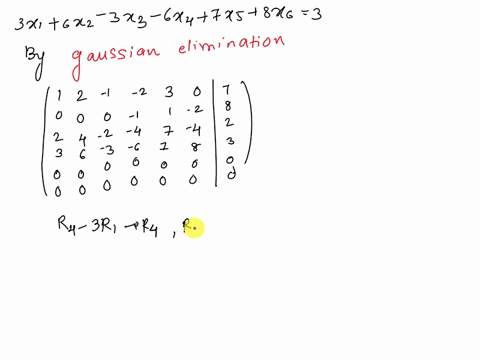 3x1+6x2-3x3-6x4+7x5+8x6=3
By gaussian elimination
1 2 -1 -2 3 0 | 7
0 0 0 -1 1 -2 | 8
2 4 -2 -4 7 -4 | 2
3 6 -3 -6 7 8 | 3
0 0 0 0 0 0 | 0
0 0 0 0 0 0 | 0
R4-3R1→R4, R